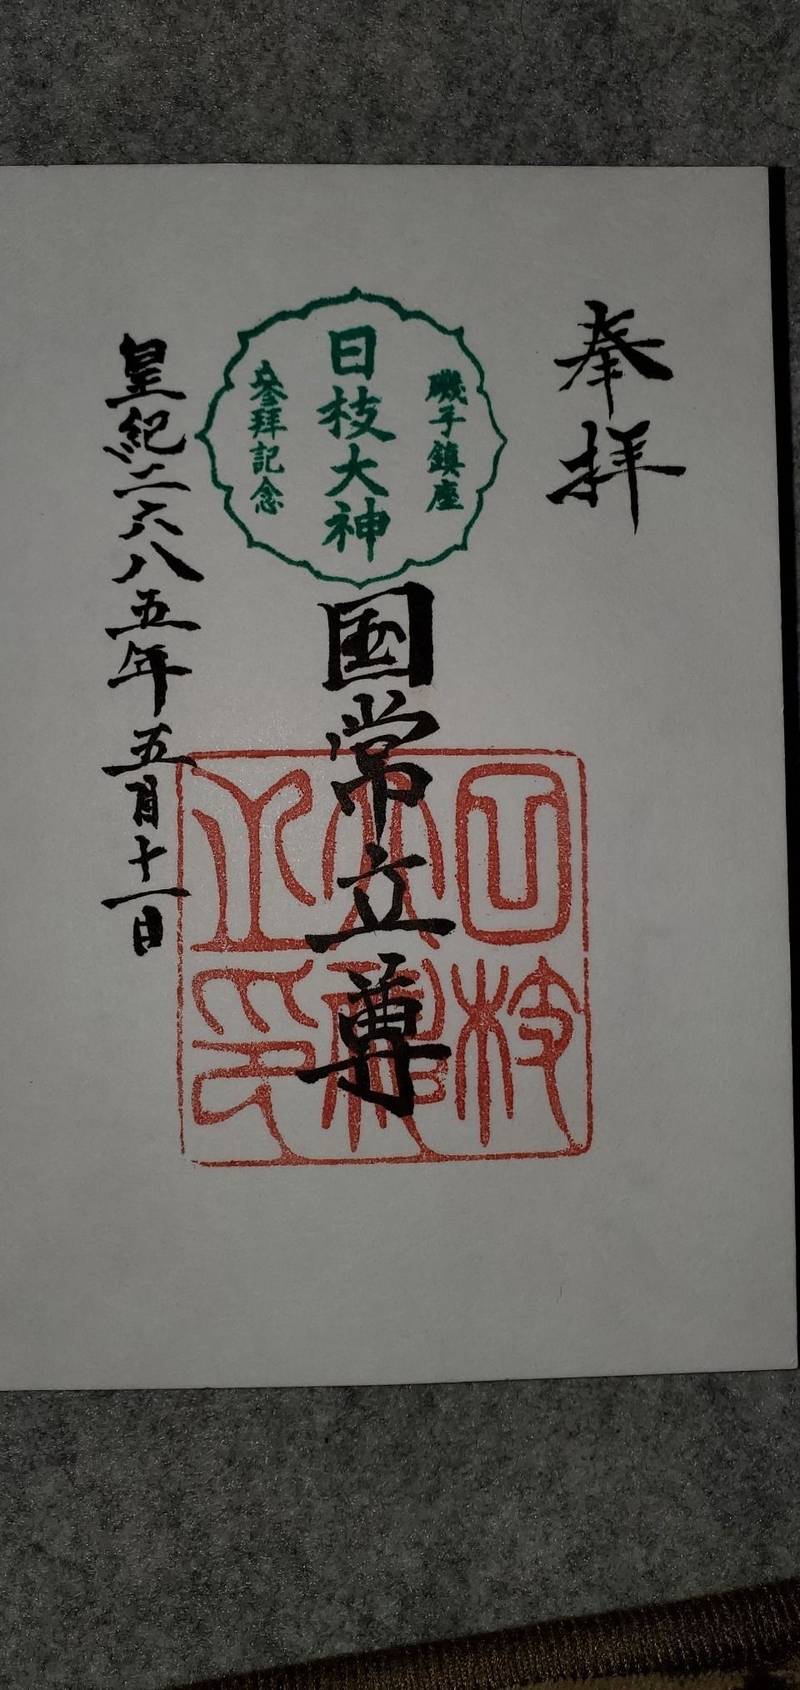 奉拝
磯子鎮座
日枝大神
参拝記念
国常立尊
皇紀二六八五年五月十一日
日枝
大神
之印